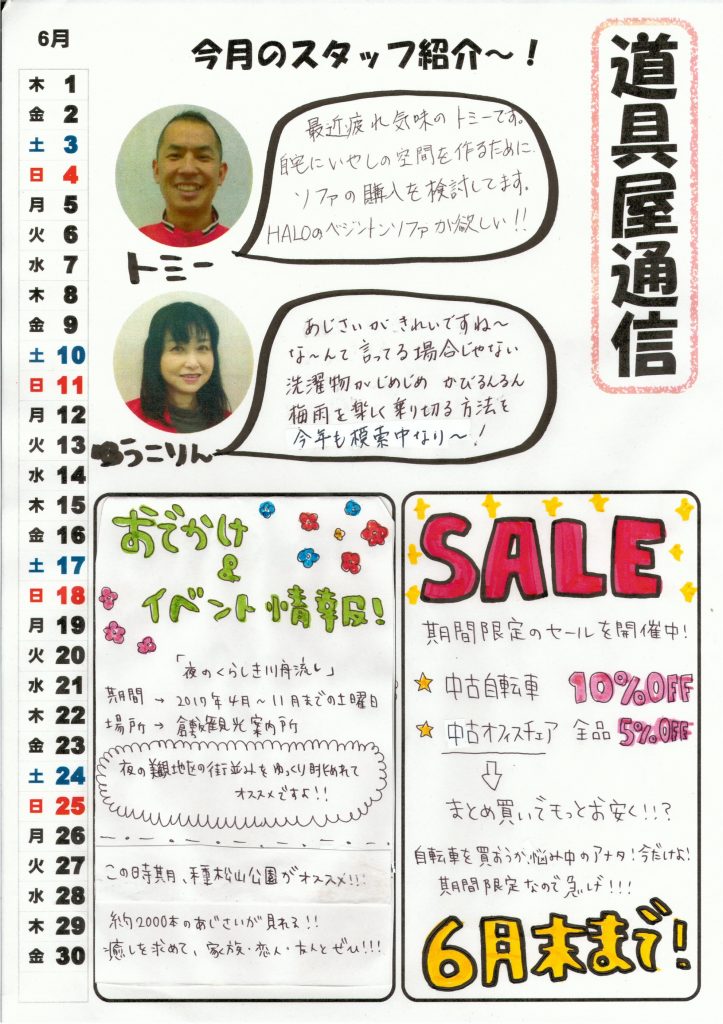 6月
今月のスタッフ紹介〜！
道具屋通信
木 1
金 2
土 3
日 4
月 5
火 6
水 7
木 8
金 9
土 10
日 11
月 12
火 13
水 14
木 15
金 16
土 17
日 18
月 19
火 20
水 21
木 22
金 23
土 24
日 25
月 26
火 27
水 28
木 29
金 30
最近疲れ気味のトミーです。
自宅にいやしの空間を作るために
ソファの購入を検討してます。
HALOのベジントンソファが欲しい!!
トミー
あじさいがきれいですね〜
な〜んて言ってる場合じゃない
洗濯物がじめじめ かびるんるん
梅雨を楽しく乗り切る方法を
今年も模索中なり〜!
ゆうこりん
おでかけ
&
イベント情報!
「夜のくらしき川舟流し」
期間 → 2017年4月〜11月までの土曜日
場所 → 倉敷観光案内所
夜の美観地区の街並みをゆっくり眺めれて
オススメですよ!!
この時期、種松山公園がオススメ!!!
約2000本のあじさいが見れる!!
癒しを求めて、家族・恋人・友人とぜひ!!!
SALE
期間限定のセールを開催中!
中古自転車 10%OFF
中古オフィスチェア 全品 5%OFF
まとめ買いでもっとお安く!!?
自転車を買おうか悩み中のアナタ!今だけよ!
期間限定なので急げ!!!
6月末まで!